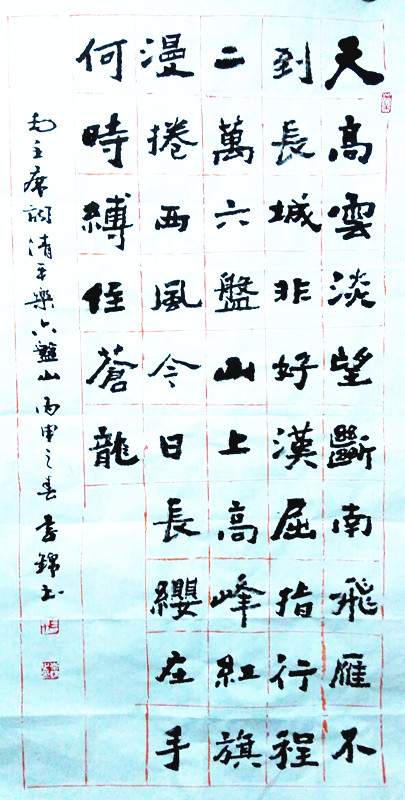 天高雲淡望斷南飛雁不
到長城非好漢屈指行程
二萬六盤山上高峰紅旗
漫捲西風今日長纓在手
何時縛住蒼龍
毛主席詞清平樂六盤山丙申之春錦书